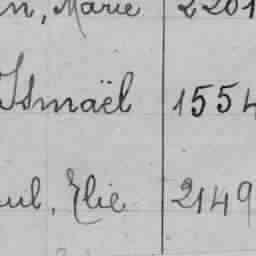 n, Marie 2201
Ismaël 1554
ul, Elie 2149